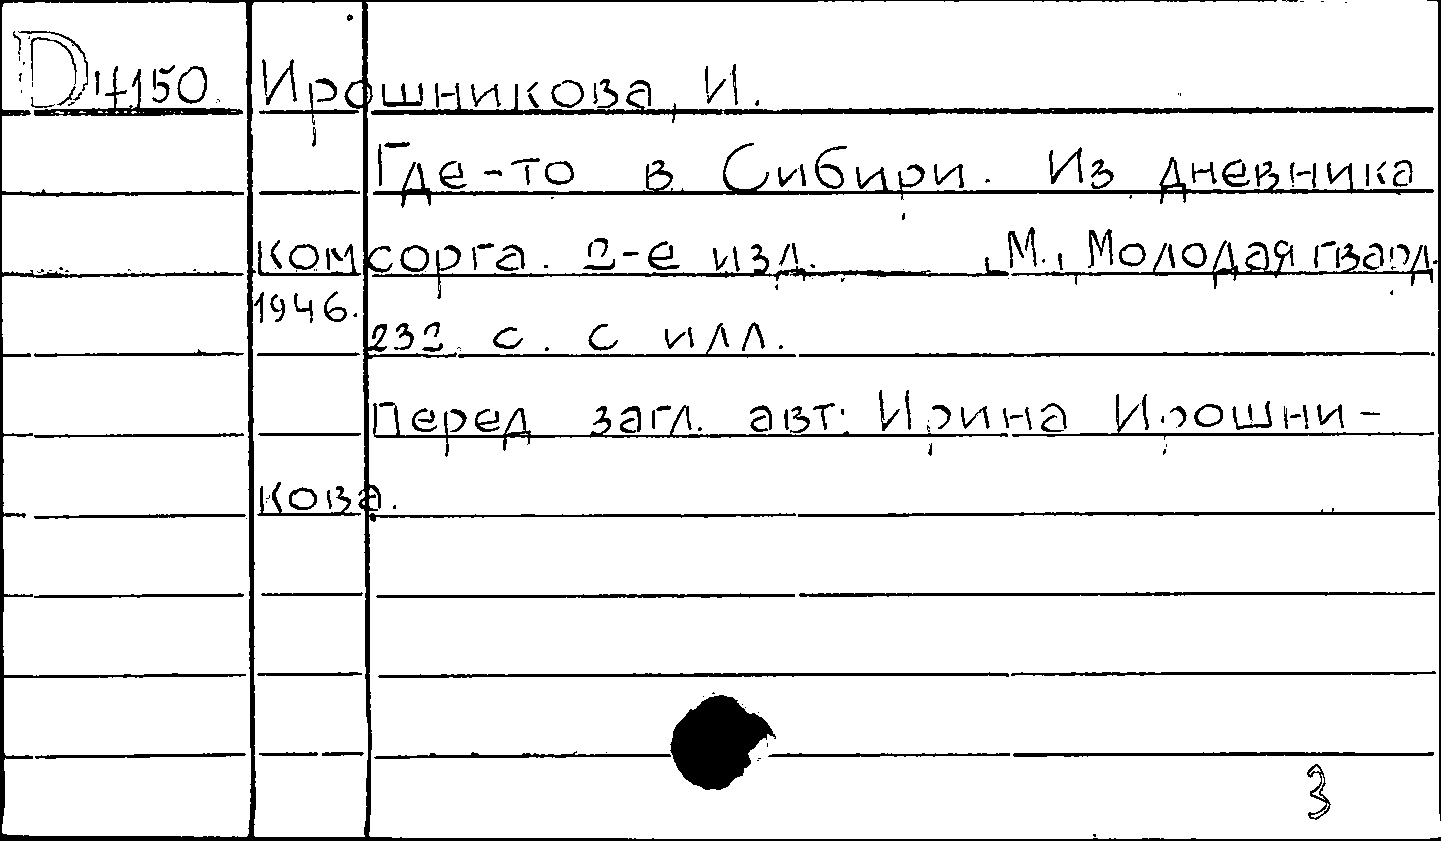 D 4150. Ирошникова, И.
Где-то в Сибири. Из дневника
комсорга. 2-е изд. — М., Молодая гвард.
1946.
232 с. с илл.
Перед загл. авт: Ирина Ирошни-
кова.
3